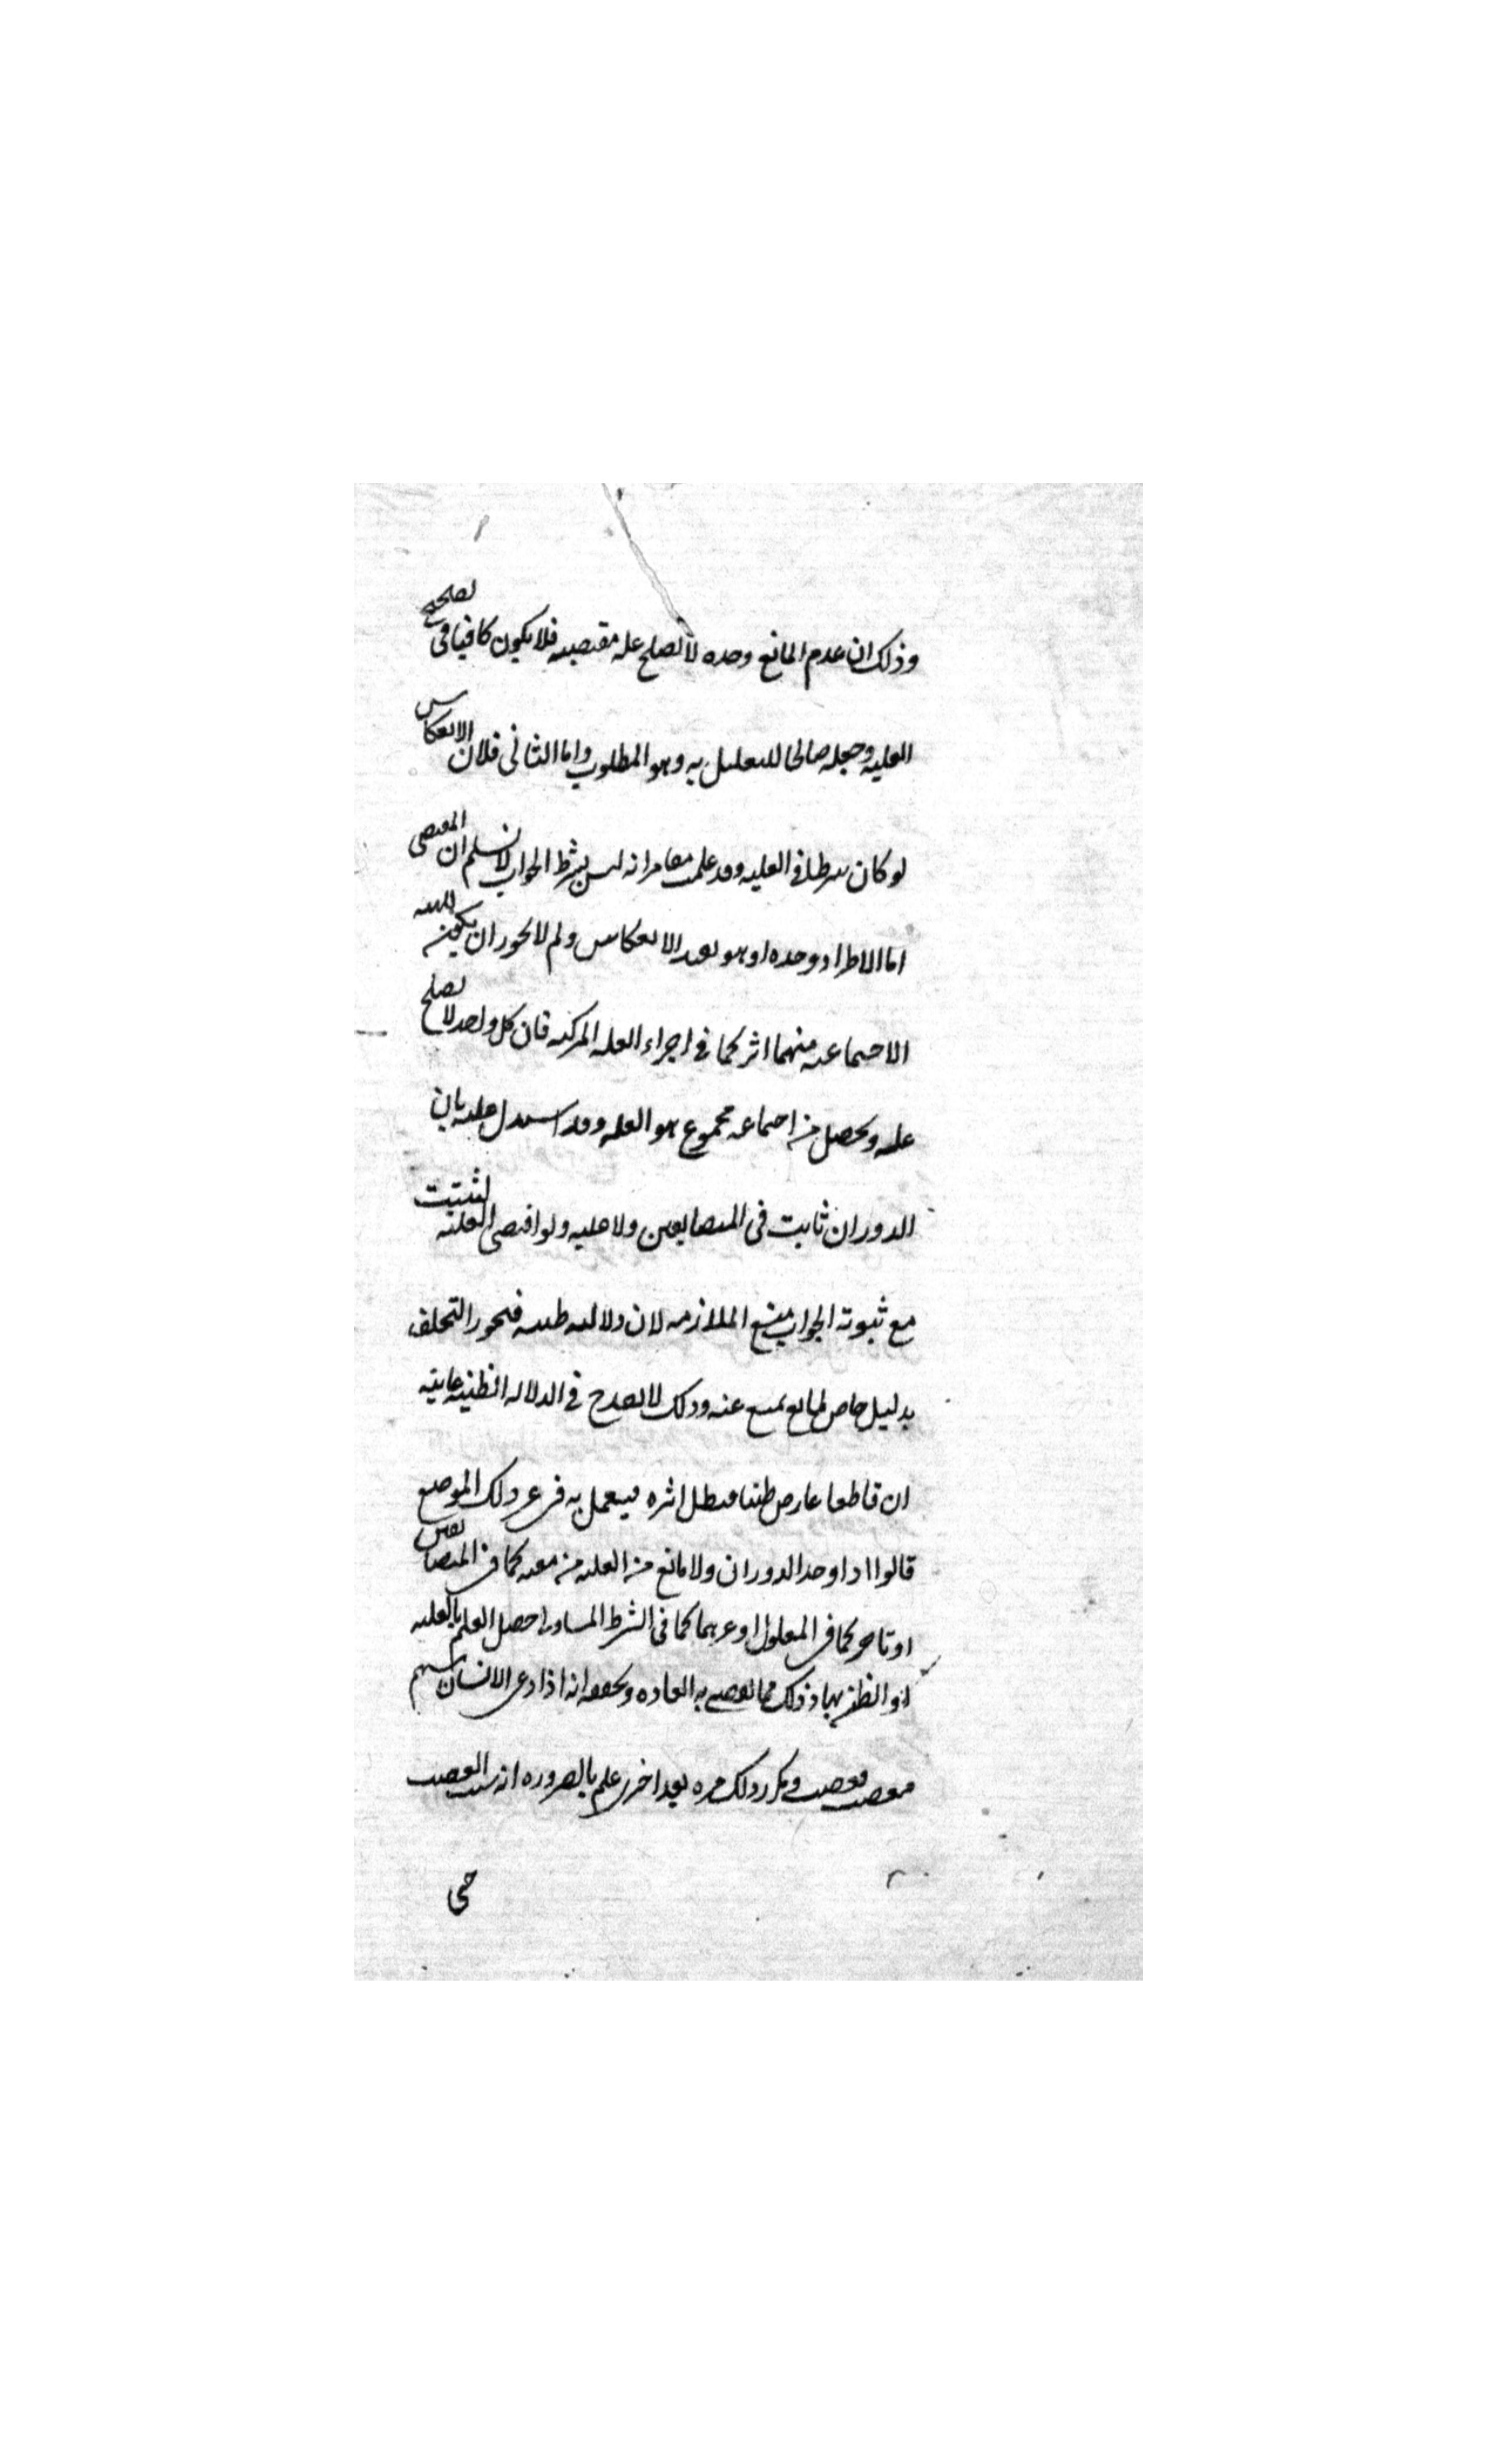 وذلك ان عدم المانع وحده لا يصلح عله مقتضيه فلا يكون كافيا في تصحيح
العليه وجعله صالحا للتعليل به وهو المطلوب واما الثانى فلان الانعكاس
لو كان شرطا في العليه وقد علمت مما مر انه ليس بشرط الجواب لا نسلم ان المقتضى
اما الاطراد وحده او هو بقيد الانعكاس ولم لا يجوز ان يكون للهيئه
الاجتماعيه منهما اثر كما في اجزاء العله المركبه فان كل واحد لا يصلح
عله ويحصل من اجتماعه مجموع هو العله وقد استدل عليه بان
الدوران ثابت في المتضايفين ولا عليه ولو اقتضى العليه لثبتت
مع ثبوته الجواب منع الملازمه لان دلالته ظنيه فيجوز التخلف
بدليل خاص لمانع يمنع عنه وذلك لا يقدح في الدلاله الظنيه غايته
ان قاطعا عارض ظنيا فبطل اثره فيعمل به في غير ذلك الموضع
قالوا اذا وجد الدوران ولا مانع من العليه من معيه كما في المتضايفين
او تاخر كما في المعلول او غيرهما كما في الشرط المساوى حصل العلم بالعليه
او الظن بها وذلك مما يقضي به العاده وتحقيقه انه اذا دعى الانسان باسم
مغضب فغضب وتكرر ذلك مره بعد اخرى علم بالضروره انه سبب الغضب
حتى